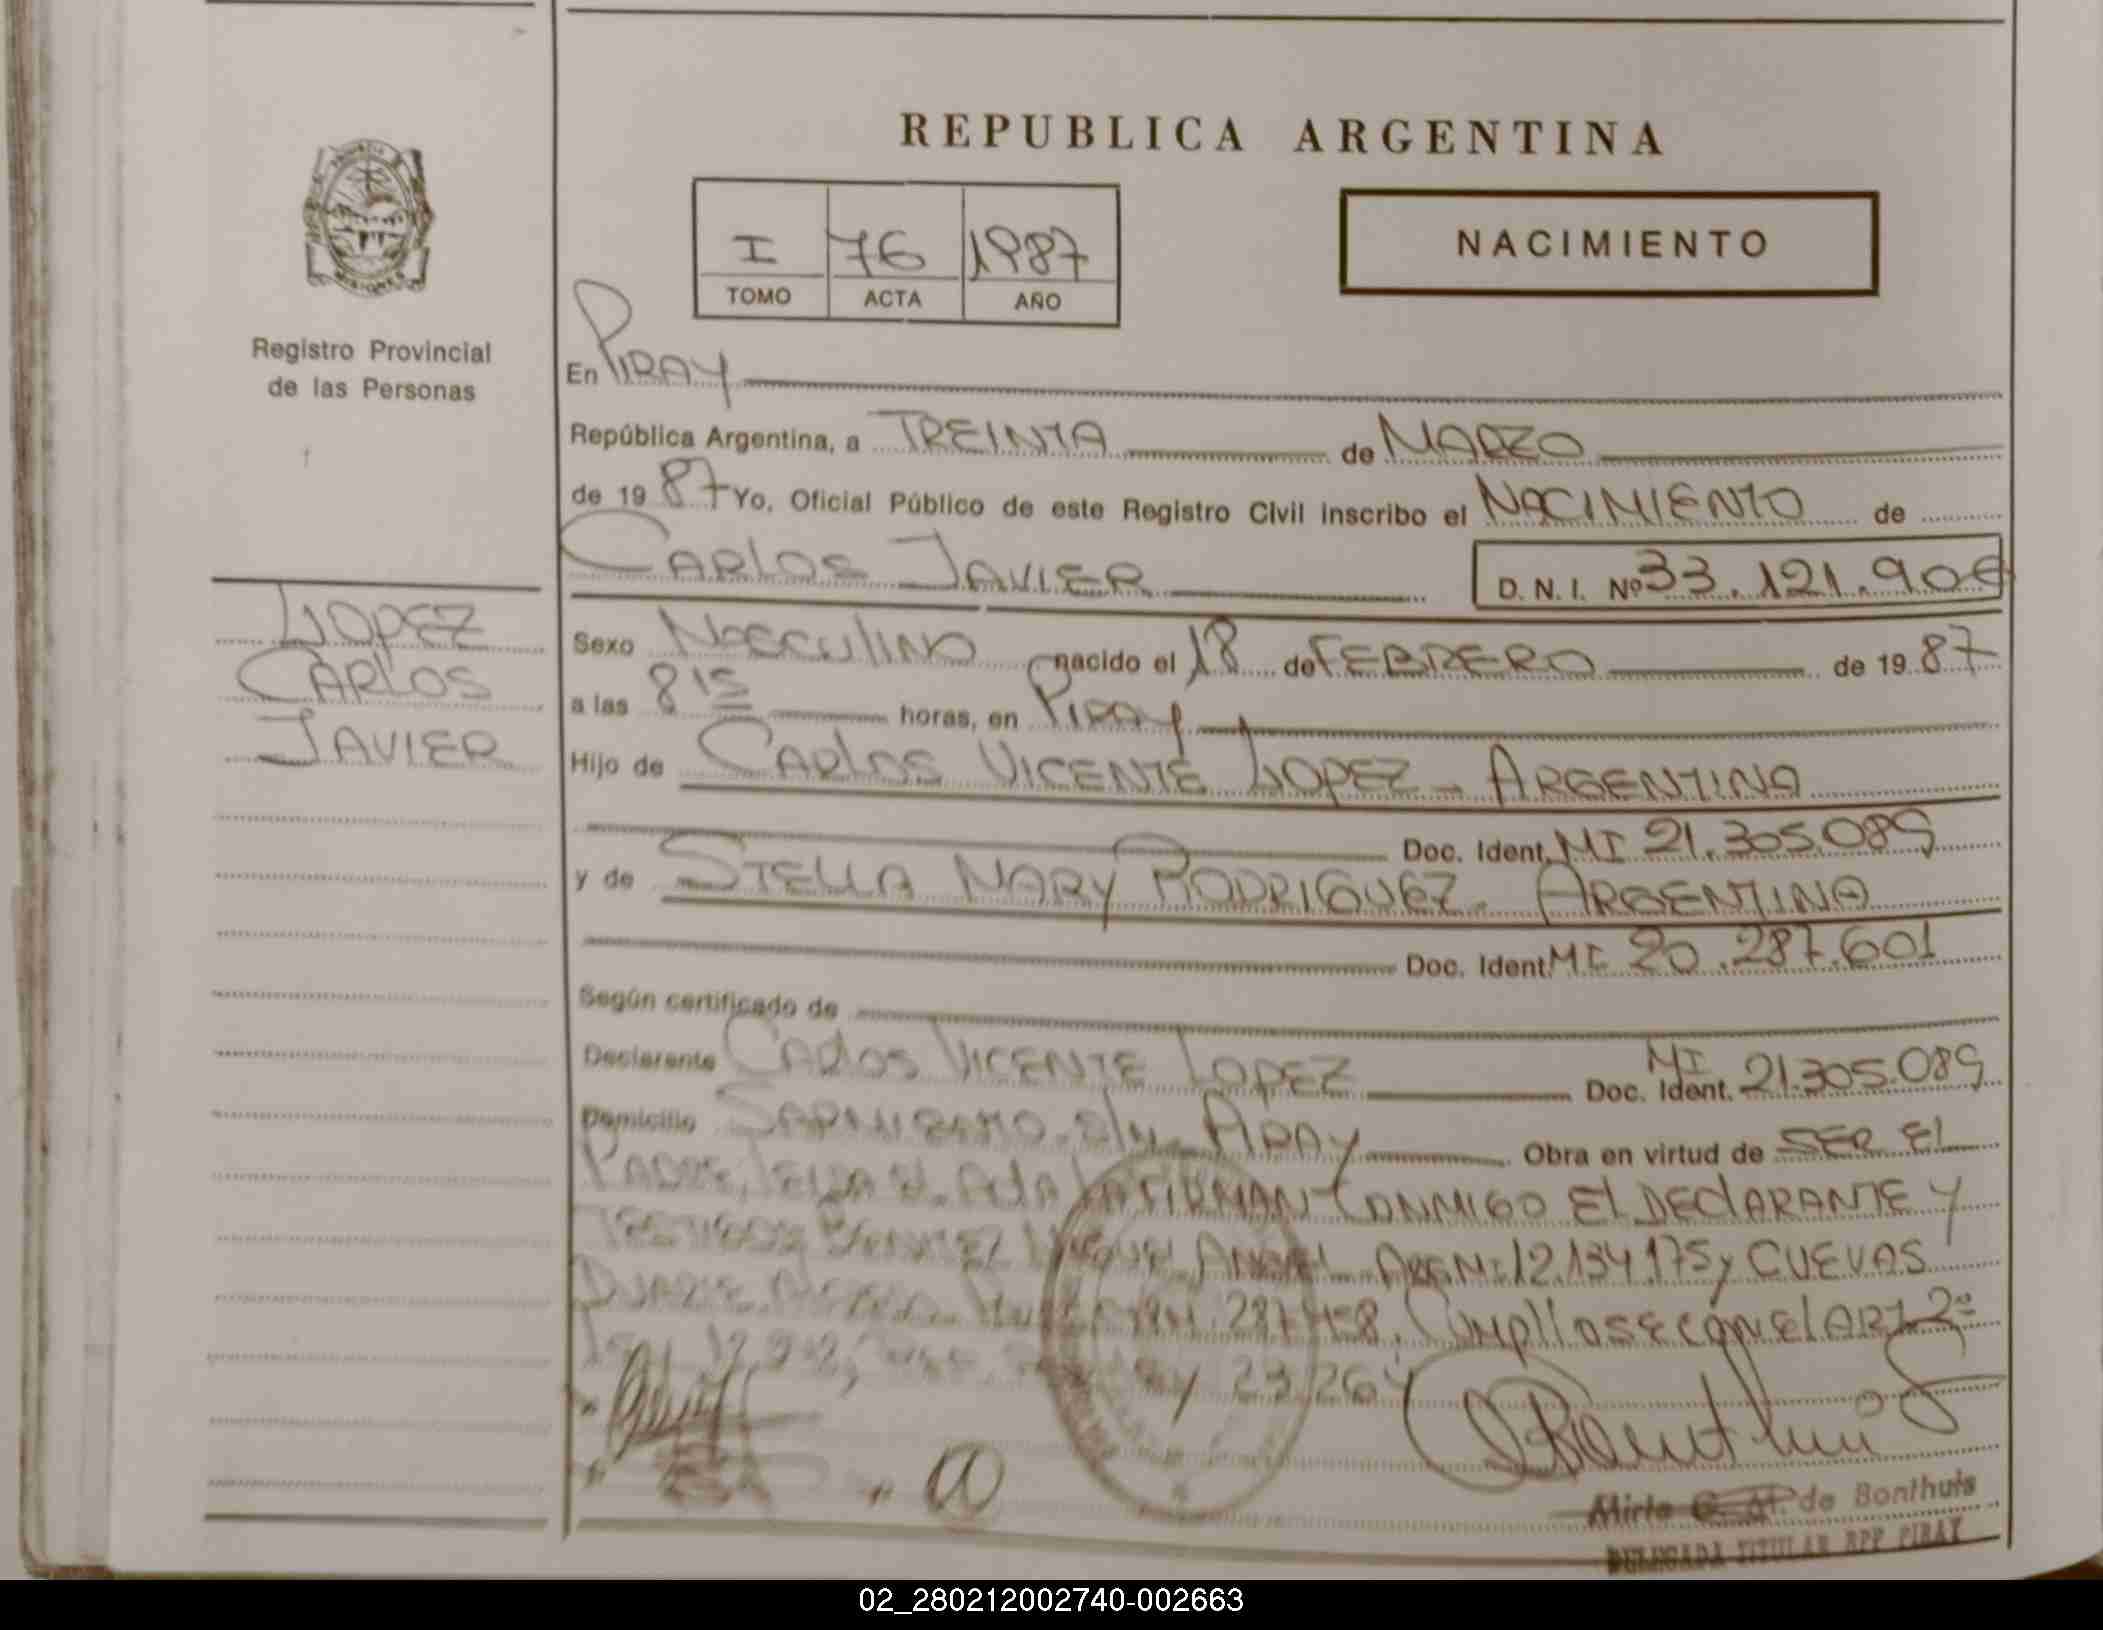 REPUBLICA ARGENTINA
I 76 1987
TOMO ACTA AÑO
NACIMIENTO
Registro Provincial
de las Personas
En PIRAY
República Argentina, a TREINTA de MARZO
de 1987 Yo, Oficial Público de este Registro Civil inscribo el NACIMIENTO de
CARLOS JAVIER D. N. I. Nº 33.121.906
LOPEZ
CARLOS
JAVIER
Sexo MASCULINO nacido el 18 de FEBRERO de 1987
a las 8 15 horas, en PIRAY
Hijo de CARLOS VICENTE LOPEZ - ARGENTINO
Doc. Ident. MI 21.305.089
y de STELLA MARY RODRIGUEZ - ARGENTINA
Doc. Ident. MI 20.287.601
Según certificado de
Declarante CARLOS VICENTE LOPEZ Doc. Ident. MI 21.305.089
Domicilio SARMIENTO s/n PIRAY Obra en virtud de SER EL
PADRE, LEIDA EL ACTA LA FIRMAN CONMIGO EL DECLARANTE Y
TESTIGOS MIGUEL ANGEL 12.134.175 y CUEVAS
DUARTE CUMPLIOSE CON EL ART 2º
y 23.264
Mirta de Bonthuis
DELEGADA TITULAR RPP PIRAY
02_280212002740-002663